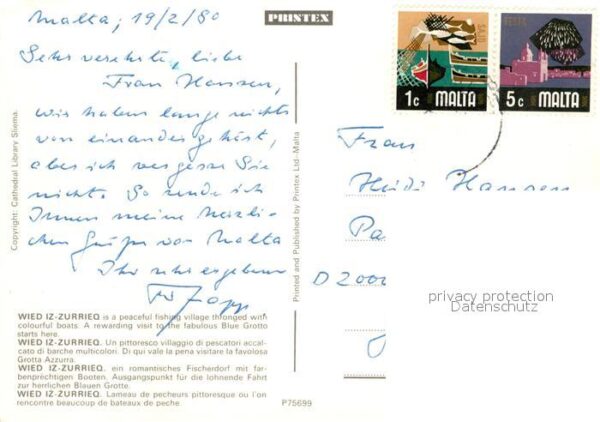 Malta, 19/2/80
PRINTEX
Sehr verehrte, liebe
Frau Hansen,
wir haben lange nichts
von einander gehört,
aber ich vergesse Sie
nicht. So sende ich
Ihnen meine herzli-
chen Grüße von Malta
Ihr sehr ergebener
Copyright: Cathedral Library Sliema.
Printed and Published by Printex Ltd-Malta
SAJD
1c MALTA
FESTA
5c MALTA
Frau
Heidi Hansen
Pa
D 2000
privacy protection
Datenschutz
WIED IZ-ZURRIEQ is a peaceful fishing village thronged with
colourful boats. A rewarding visit to the fabulous Blue Grotto
starts here.
WIED IZ-ZURRIEQ. Un pittoresco villaggio di pescatori accal-
cato di barche multicolori. Di qui vale la pena visitare la favolosa
Grotta Azzurra.
WIED IZ-ZURRIEQ. ein romantisches Fischerdorf mit far-
benprechtigen Booten. Ausgangspunkt für die lohnende Fahrt
zur herrlichen Blauen Grotte.
WIED IZ-ZURRIEQ. Lameau de pecheurs pittoresque ou l'on
rencontre beaucoup de bateaux de peche.
P75699